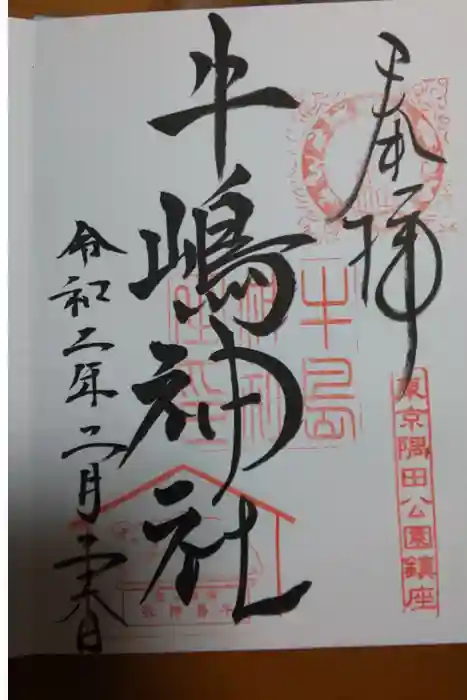 奉拝
東京隅田公園鎮座
牛嶋神社
牛島
令和二年二月二十六日